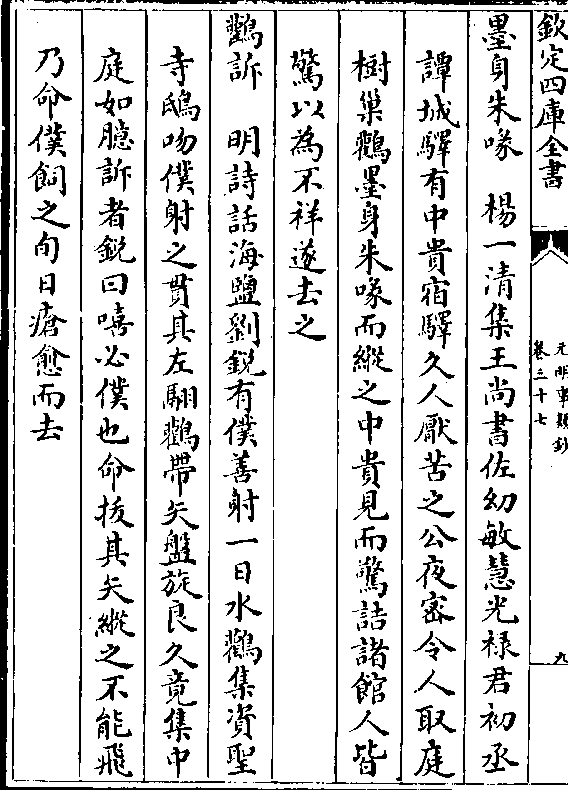 欽定四庫全書
元明事類鈔
卷三十七
九
墨身朱喙　楊一清集王尚書佐幼敏慧光禄君初丞
譚城驛有中貴宿驛久人厭苦之公夜密令人取庭
樹巢鸛墨身朱喙而縱之中貴見而驚詰諸館人皆
驚以為不祥遂去之
鸛訴　明詩話海鹽劉鋭有僕善射一日水鸛集資聖
寺鴟吻僕射之貫其左翮鸛帶矢盤旋良久竟集中
庭如臆訴者鋭曰嘻必僕也命拔其矢縱之不能飛
乃命僕飼之旬日瘡愈而去